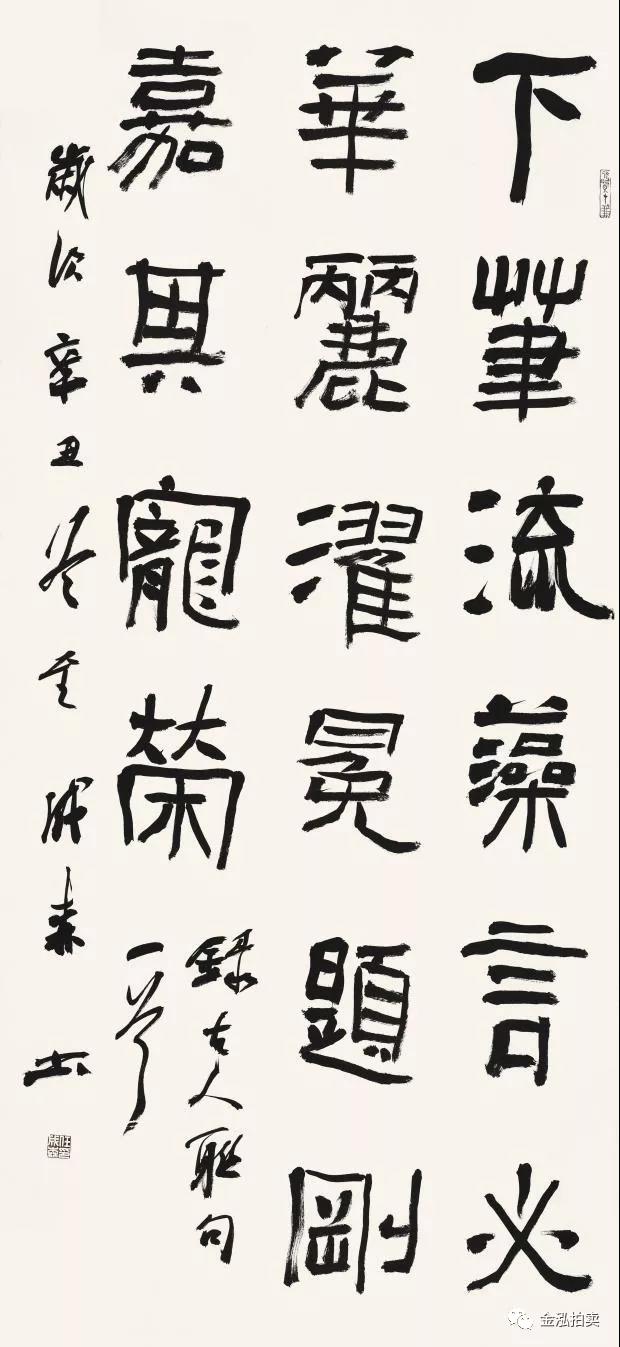 下筆流藻言必
華麗濯冕題剛
嘉其寵榮
錄古人聯句
一首
歲次辛丑冬至 森书
金泓拍卖